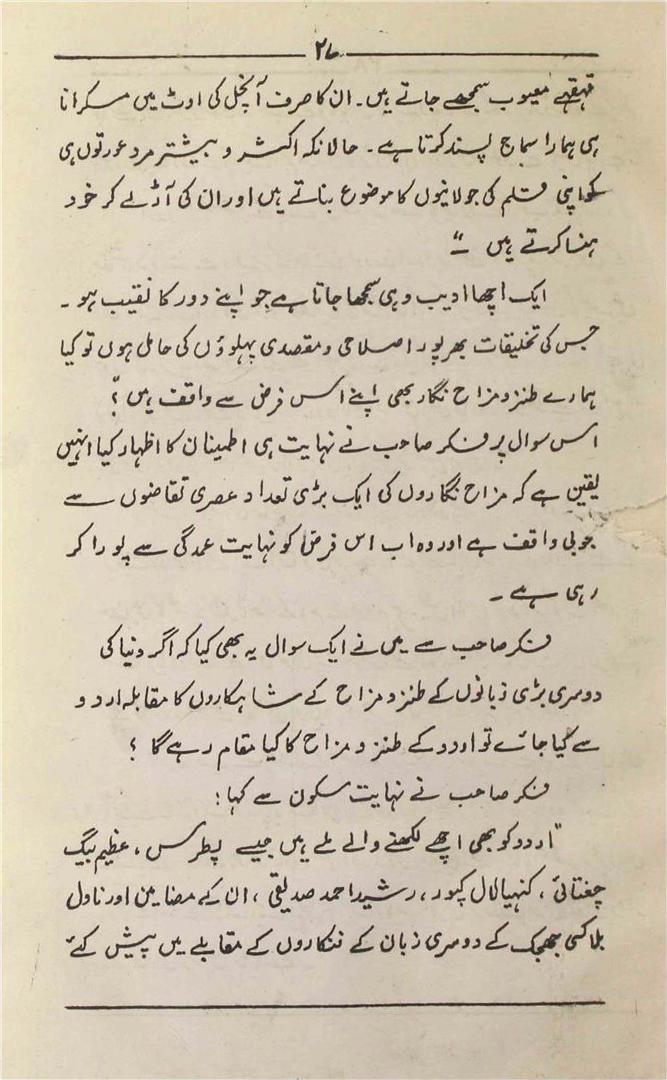 ۲۷
قہقہے معیوب سمجھے جاتے ہیں۔ ان کا صرف آنچل کی اوٹ میں مسکرانا
ہی ہمارا سماج پسند کرتا ہے۔ حالانکہ اکثر و بیشتر مرد عورتوں ہی
کو اپنی قلم کی جولانیوں کا موضوع بناتے ہیں اور ان کی آڑ لے کر خود
ہنسا کرتے ہیں ۔"
ایک اچھا ادیب وہی سمجھا جاتا ہے جو اپنے دور کا نقیب ہو۔
جس کی تخلیقات بھرپور اصلاحی و مقصدی پہلوؤں کی حامل ہوں تو کیا
ہمارے طنز و مزاح نگار بھی اپنے اس فرض سے واقف ہیں؟"
اس سوال پر فکر صاحب نے نہایت ہی اطمینان کا اظہار کیا انہیں
یقین ہے کہ مزاح نگاروں کی ایک بڑی تعداد عصری تقاضوں سے
خوبی واقف ہے اور وہ اب اس فرض کو نہایت عمدگی سے پورا کر
رہی ہے۔
فکر صاحب سے میں نے ایک سوال یہ بھی کیا کہ اگر دنیا کی
دوسری بڑی زبانوں کے طنز و مزاح کے شاہکاروں کا مقابلہ اردو
سے کیا جائے تو اردو کے طنز و مزاح کا کیا مقام رہے گا؟
فکر صاحب نے نہایت سکون سے کہا:
"اردو کو بھی اچھے لکھنے والے ملے ہیں جیسے پطرس، عظیم بیگ
چغتائی، کنہیا لال کپور، رشید احمد صدیقی، ان کے مضامین اور ناول
بلا کسی جھجک کے دوسری زبان کے فنکاروں کے مقابلے میں پیش کئے